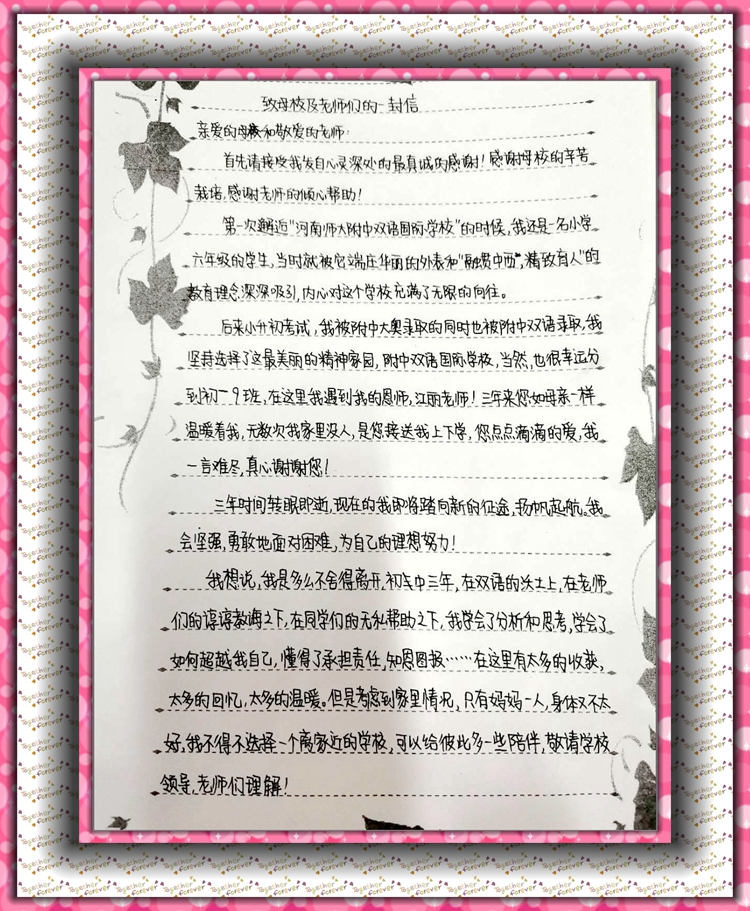 致母校及老师们的一封信
亲爱的母校和敬爱的老师:
首先请接受我发自心灵深处的最真诚的感谢!感谢母校的辛苦
栽培,感谢老师的倾心帮助!
第一次邂逅"河南师大附中双语国际学校"的时候,我还是一名小学
六年级的学生,当时就被它端庄华丽的外表和"融贯中西,精致育人"的
教育理念深深吸引,内心对这个学校充满了无限的向往。
后来小升初考试,我被附中大奥录取的同时也被附中双语录取,我
坚持选择了这最美丽的精神家园,附中双语国际学校,当然,也很幸运分
到初一9班,在这里我遇到我的恩师,江丽老师!三年来您如母亲一样
温暖着我,无数次我家里没人,是您接送我上下学,您点点滴滴的爱,我
一言难尽,真心谢谢您!
三年时间转眼即逝,现在的我即将踏向新的征途,扬帆起航。我
会坚强,勇敢地面对困难,为自己的理想努力!
我想说,我是多么不舍得离开,初中三年,在双语的沃土上,在老师
们的谆谆教诲之下,在同学们的无私帮助之下,我学会了分析和思考,学会了
如何超越我自己,懂得了承担责任,知恩图报……在这里有太多的收获,
太多的回忆,太多的温暖。但是考虑到家里情况,只有妈妈一人,身体又不太
好,我不得不选择一个离家近的学校,可以给彼此多一些陪伴,敬请学校
领导,老师们理解!
Together
forever